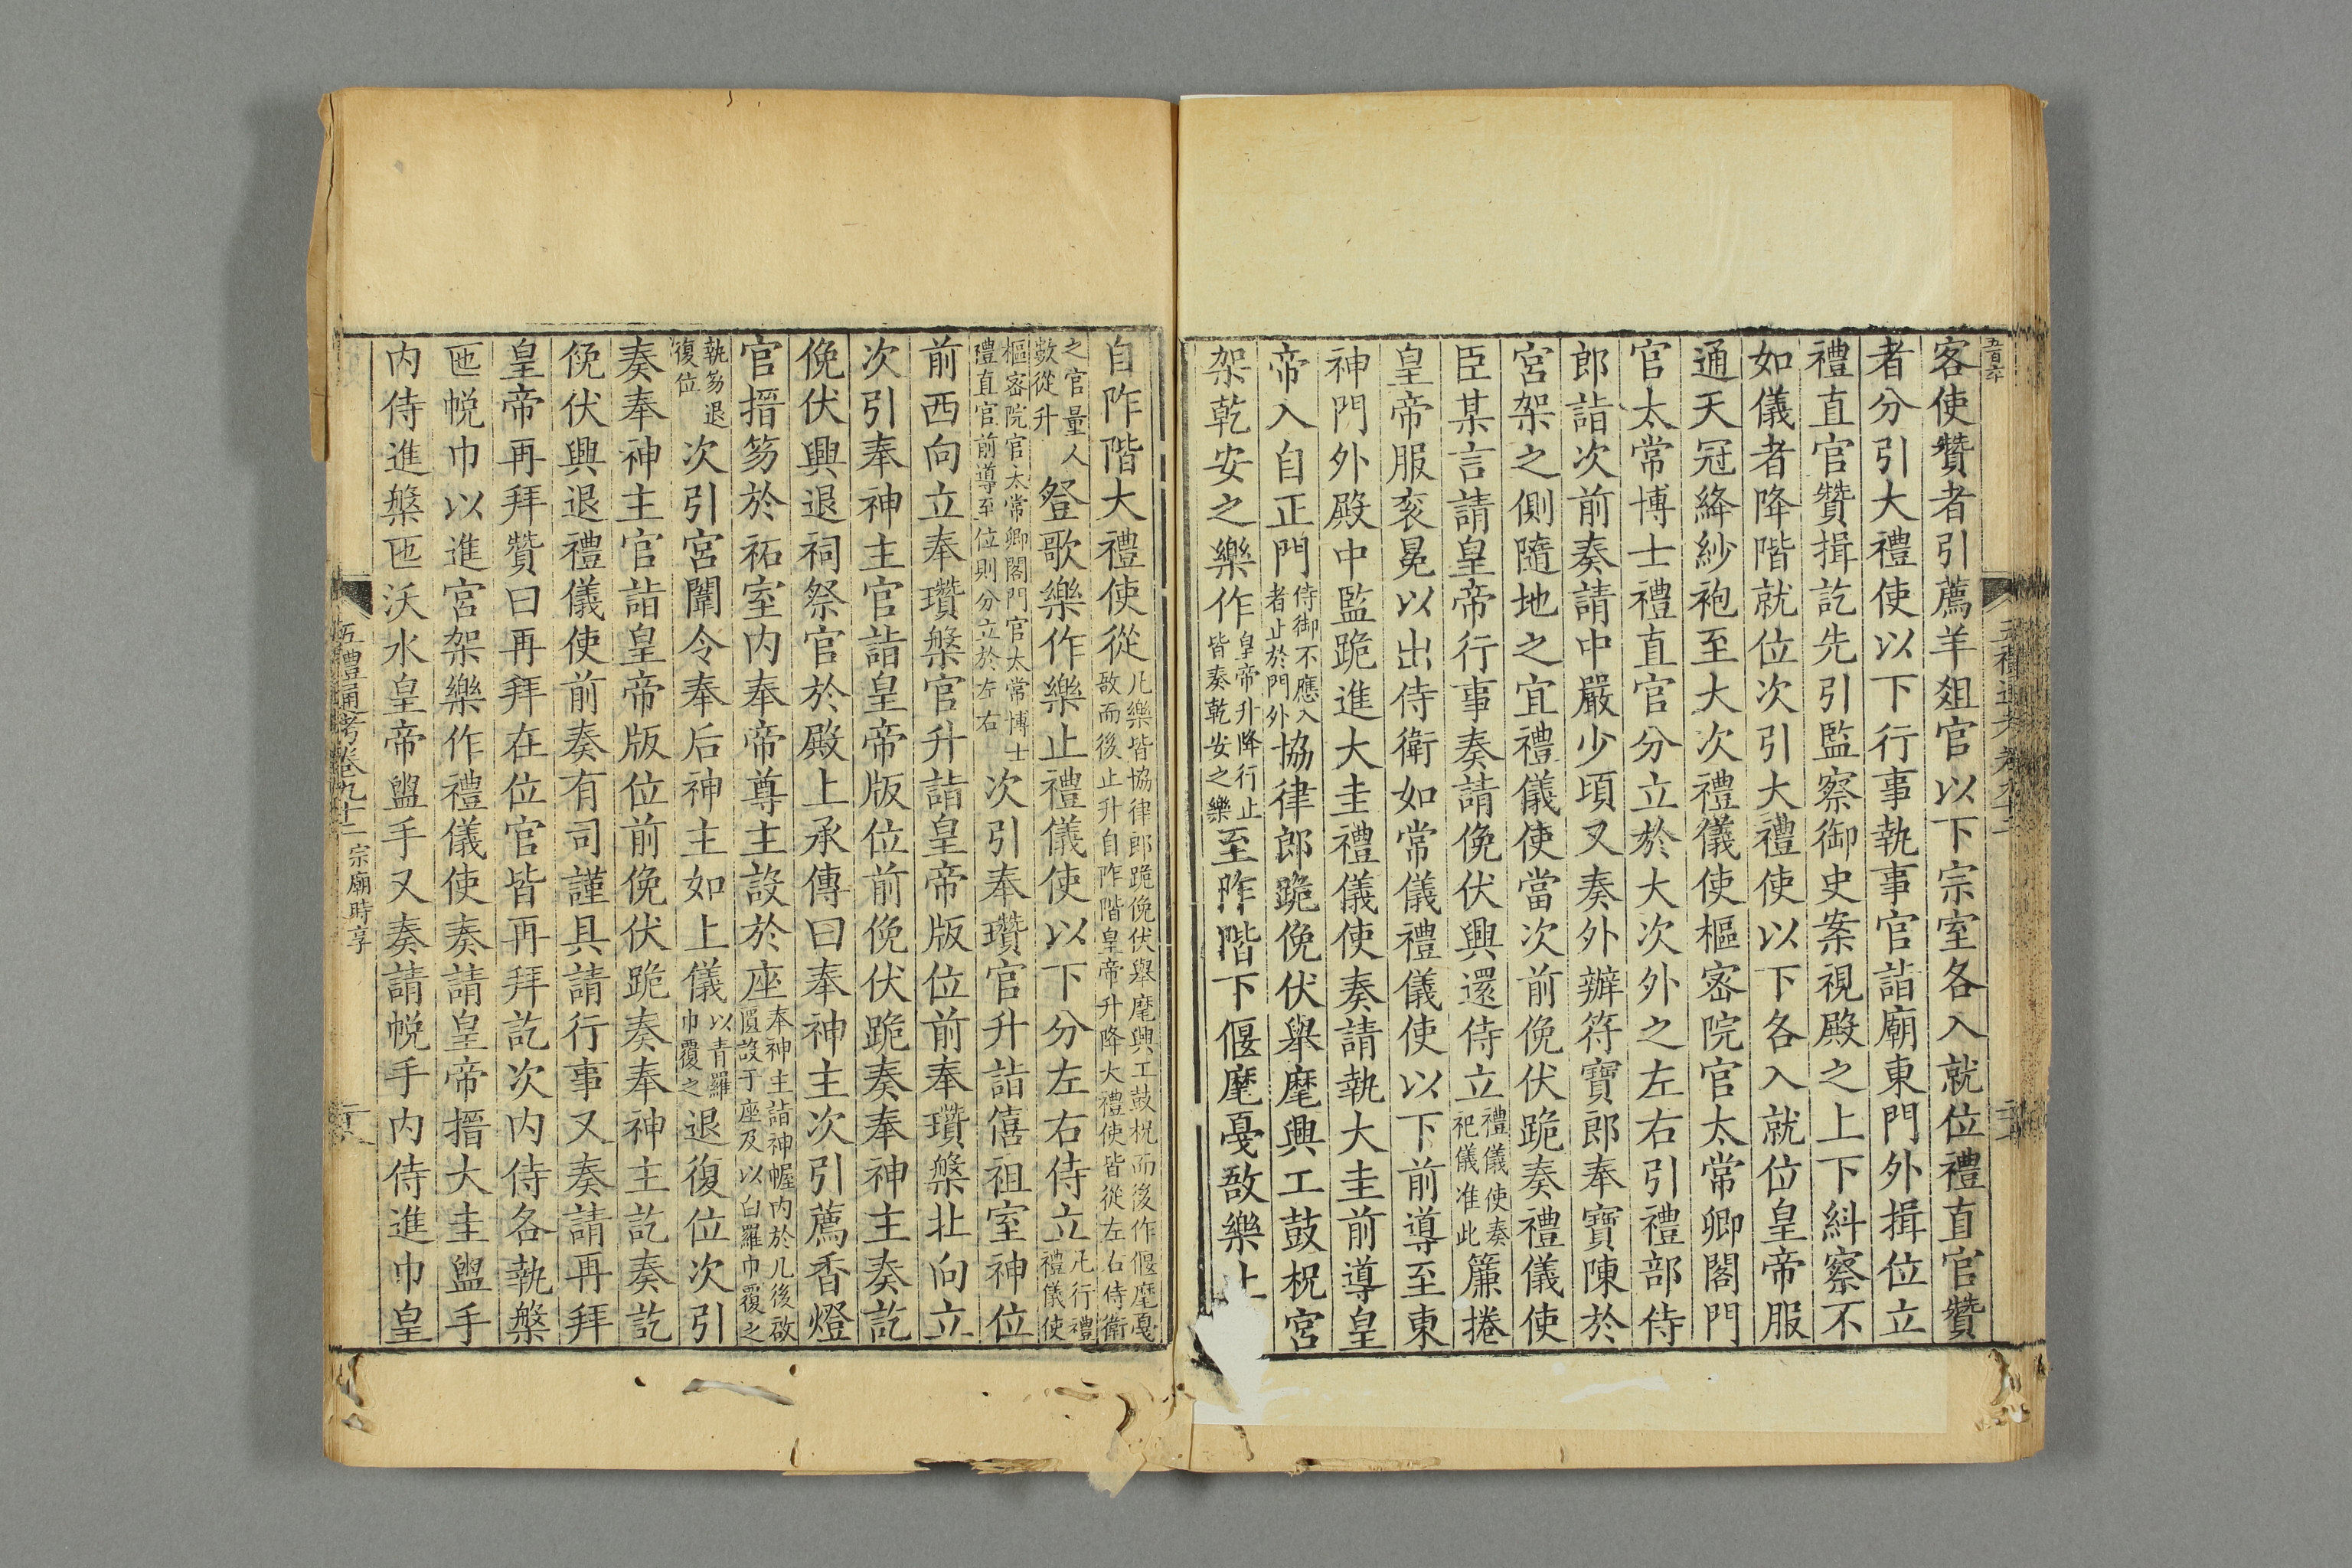 客使贊者引薦羊俎官以下宗室各入就位禮直官贊
者分引大禮使以下行事執事官詣廟東門外揖位立
禮直官贊揖訖先引監察御史案視殿之上下糾察不
如儀者降階就位次引大禮使以下各入就位皇帝服
通天冠絳紗袍至大次禮儀使樞密院官太常卿閤門
官太常博士禮直官分立於大次外之左右引禮部侍
郎詣次前奏請中嚴少頃又奏外辦符寶郎奉寶陳於
宮架之側隨地之宜禮儀使當次前俛伏跪奏禮儀使
臣某言請皇帝行事奏請俛伏興還侍立禮儀使奏祀儀准此簾捲
皇帝服袞冕以出侍衛如常儀禮儀使以下前導至東
神門外殿中監跪進大圭禮儀使奏請執大圭前導皇
帝入自正門侍御不應入者止於門外協律郎跪俛伏舉麾興工鼓柷宮
架乾安之樂作皇帝升降行止皆奏乾安之樂至阼階下偃麾戛敔樂止
自阼階大禮使從凡樂皆協律郎跪俛伏舉麾興工鼓柷而後作偃麾戛敔而後止升自阼階皇帝升降大禮使皆從左右侍衛
之官量人數從升登歌樂作樂止禮儀使以下分左右侍立凡行禮禮儀使
樞密院官太常卿閤門官太常博士禮直官前導至位則分立於左右次引奉瓚官升詣僖祖室神位
前西向立奉瓚槃官升詣皇帝版位前奉瓚槃北向立
次引奉神主官詣皇帝版位前俛伏跪奏奉神主奏訖
俛伏興退祠祭官於殿上承傳曰奉神主次引薦香燈
官搢笏於祏室内奉帝尊主設於座奉神主詣神幄内於几後啟匱設于座及以白羅巾覆之
執笏退復位次引宮闈令奉后神主如上儀以青羅巾覆之退復位次引
奏奉神主官詣皇帝版位前俛伏跪奏奉神主訖奏訖
俛伏興退禮儀使前奏有司謹具請行事又奏請再拜
皇帝再拜贊曰再拜在位官皆再拜訖次内侍各執槃
匜帨巾以進宮架樂作禮儀使奏請皇帝搢大圭盥手
内侍進槃匜沃水皇帝盥手又奏請帨手内侍進巾皇
五禮通考卷九十二 宗廟時享